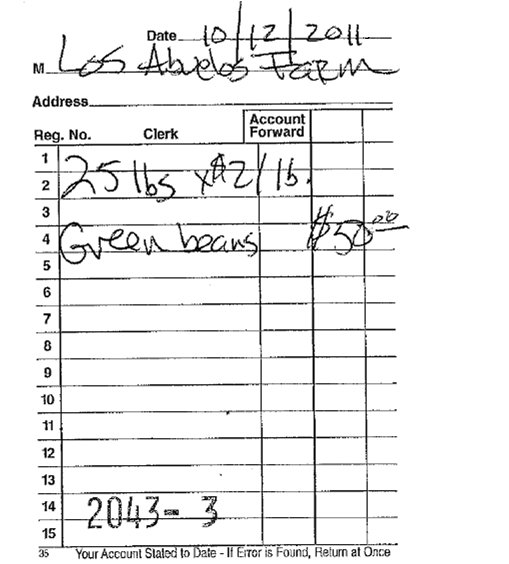 Date 10/12/2011
M Los Abuelos Farm
Address
Reg. No. Clerk Account Forward
1
2 25 lbs x $2/lb.
3
4 Green beans $50.00
5
6
7
8
9
10
11
12
13
14 2043-3
15
35 Your Account Stated to Date - If Error is Found, Return at Once